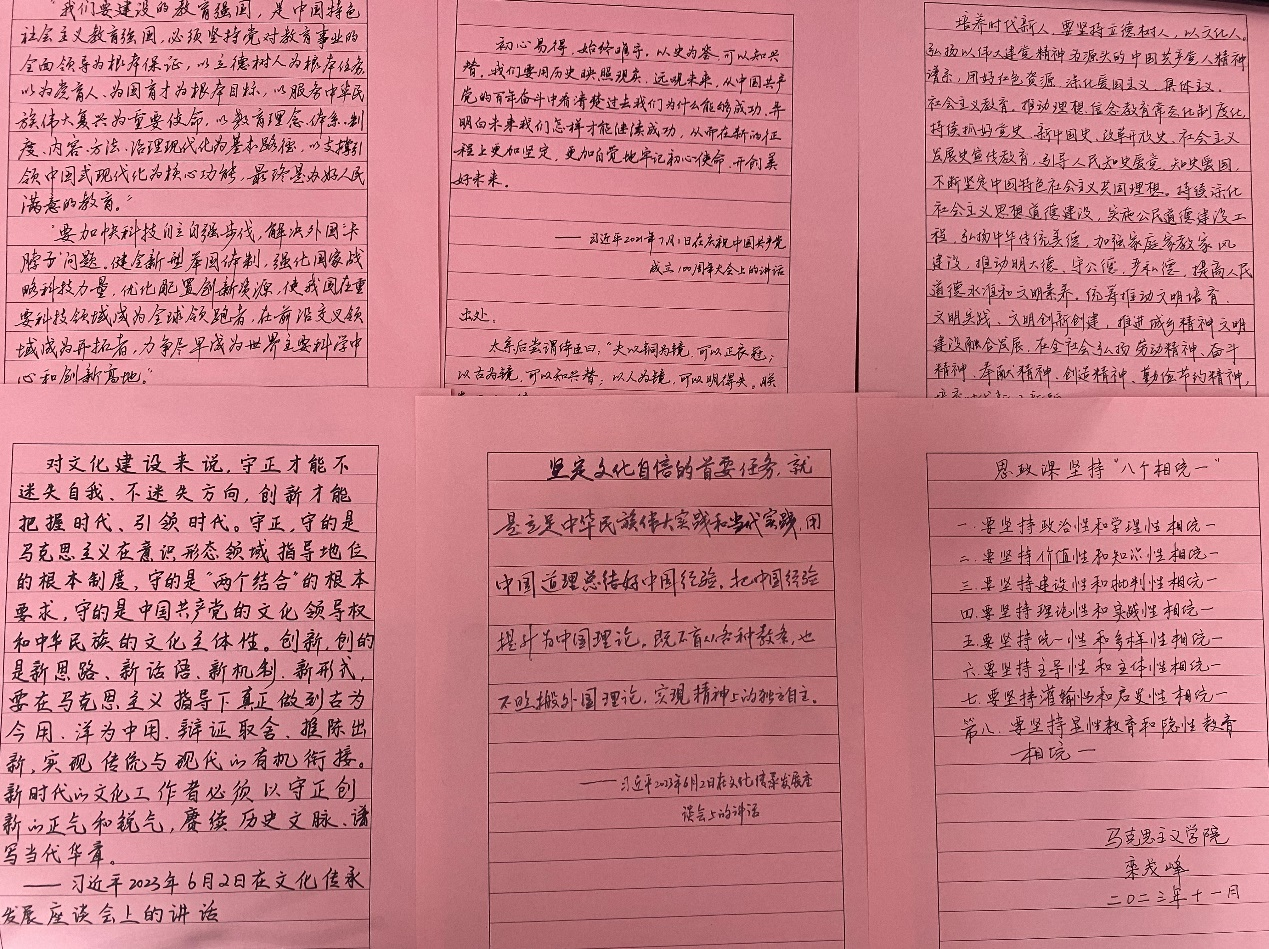 "我们要建设的教育强国，是中国特色
社会主义教育强国，必须坚持党对教育事业的
全面领导为根本保证，以立德树人为根本任务，
以为党育人、为国育才为根本目标，以服务中华民
族伟大复兴为重要使命，以教育理念、体系、制
度、内容、方法、治理现代化为基本路径，以支撑引
领中国式现代化为核心功能，最终是办好人民
满意的教育。"
"要加快科技自立自强步伐，解决外国"卡
脖子"问题。健全新型举国体制，强化国家战
略科技力量，优化配置创新资源，使我国在重
要科技领域成为全球领跑者，在前沿交叉领
域成为开拓者，力争尽早成为世界主要科学中
心和创新高地。"
初心易得，始终难守。以史为鉴，可以知兴
替。我们要用历史映照现实、远观未来，从中国共产
党的百年奋斗中看清楚过去我们为什么能够成功、弄
明白未来我们怎样才能继续成功，从而在新的征
程上更加坚定、更加自觉地牢记初心使命、开创美
好未来。
——习近平2021年7月1日在庆祝中国共产党
成立100周年大会上的讲话
出处：
太宗后尝谓侍臣曰："夫以铜为镜，可以正衣冠；
以古为镜，可以知兴替；以人为镜，可以明得失。朕
培养时代新人，要坚持立德树人，以文化人。
弘扬以伟大建党精神为源头的中国共产党人精神
谱系，用好红色资源，深化爱国主义、集体主义、
社会主义教育，推动理想信念教育常态化制度化，
持续抓好党史、新中国史、改革开放史、社会主义
发展史宣传教育，引导人民知史爱党、知史爱国，
不断坚定中国特色社会主义共同理想。持续深化
社会主义思想道德建设，实施公民道德建设工
程，弘扬中华传统美德，加强家庭家教家风
建设，推动明大德、守公德、严私德，提高人民
道德水准和文明素养，统筹推动文明培育、
文明实践、文明创新创建，推进城乡精神文明
建设融合发展，在全社会弘扬劳动精神、奋斗
精神、奉献精神、创造精神、勤俭节约精神，
对文化建设来说，守正才能不
迷失自我、不迷失方向，创新才能
把握时代、引领时代。守正，守的是
马克思主义在意识形态领域指导地位
的根本制度，守的是"两个结合"的根本
要求，守的是中国共产党的文化领导权
和中华民族的文化主体性。创新，创的
是新思路、新话语、新机制、新形式，
要在马克思主义指导下真正做到古为
今用、洋为中用、辩证取舍、推陈出
新，实现传统与现代的有机衔接。
新时代的文化工作者必须以守正创
新的正气和锐气，赓续历史文脉、谱
写当代华章。
——习近平2023年6月2日在文化传承
发展座谈会上的讲话
坚定文化自信的首要任务，就
是立足中华民族伟大实践和当代实践，用
中国道理总结好中国经验，把中国经验
提升为中国理论，既不盲从各种教条，也
不照搬外国理论，实现精神上的独立自主。
——习近平2023年6月2日在文化传承发展座
谈会上的讲话
思政课坚持"八个相统一"
一.要坚持政治性和学理性相统一
二.要坚持价值性和知识性相统一
三.要坚持建设性和批判性相统一
四.要坚持理论性和实践性相统一
五.要坚持统一性和多样性相统一
六.要坚持主导性和主体性相统一
七.要坚持灌输性和启发性相统一
第八.要坚持显性教育和隐性教育
相统一
马克思主义学院
栾茂峰
二〇二三年十一月